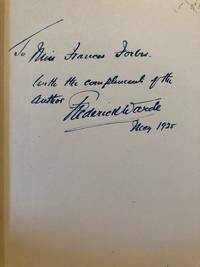 To Miss Frances Forbes.
With the complement of the
author
Frederick Warde
May 1925